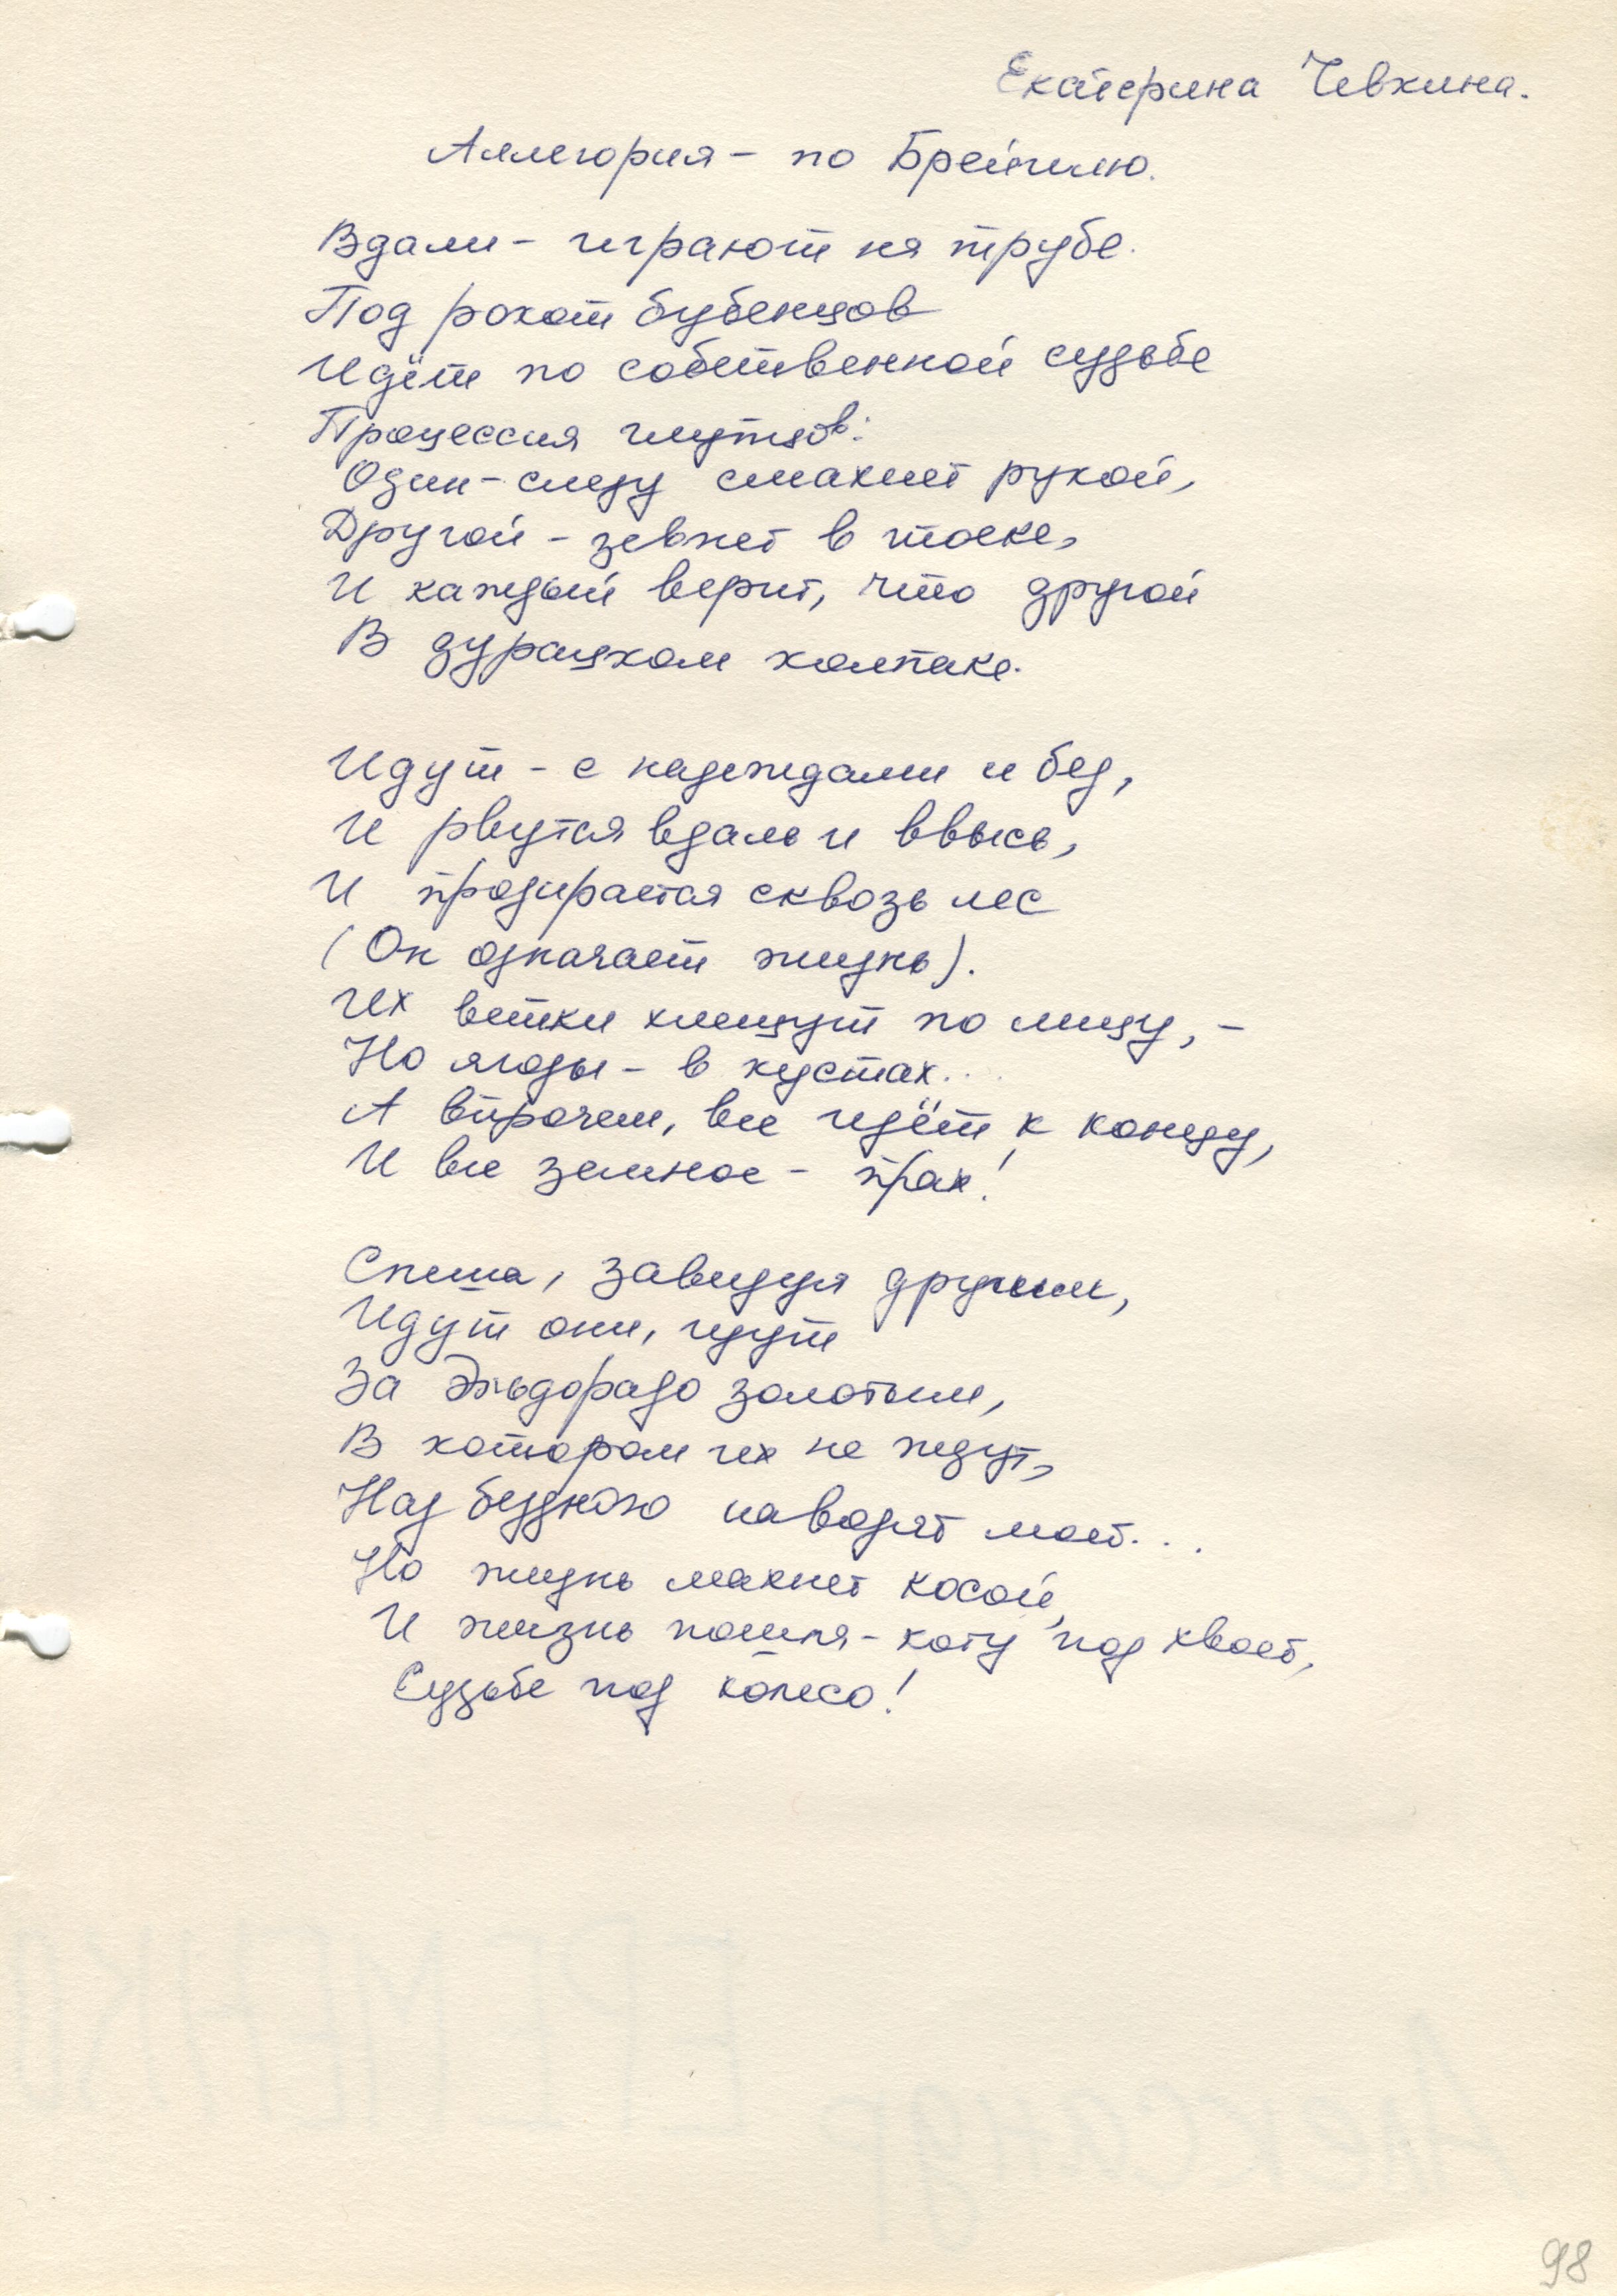 Екатерина Чевкина.
Аллегория – по Брейгелю.
Вдали – играют на трубе.
Под рокот бубенцов
Идёт по собственной судьбе
Процессия глупцов:
Один – слезу смахнет рукой,
Другой – зевнет в тоске,
И каждый верит, что другой
В дурацком колпаке.
Идут – с надеждами и без,
И рвутся вдаль и ввысь,
И продираются сквозь лес
(Он означает жизнь).
Их ветки хлещут по лицу, –
Но ягоды – в кустах...
А впрочем, все идёт к концу,
И все земное – прах!
Спеша, завидуя другим,
Идут они, идут
За Эльдорадо золотым,
В котором их не ждут,
Над бездною наводят мост...
Но жизнь махнет косой,
И жизнь пошла – коту под хвост,
Судьбе под колесо!
Александр
ЕРЕМЕНКО
98